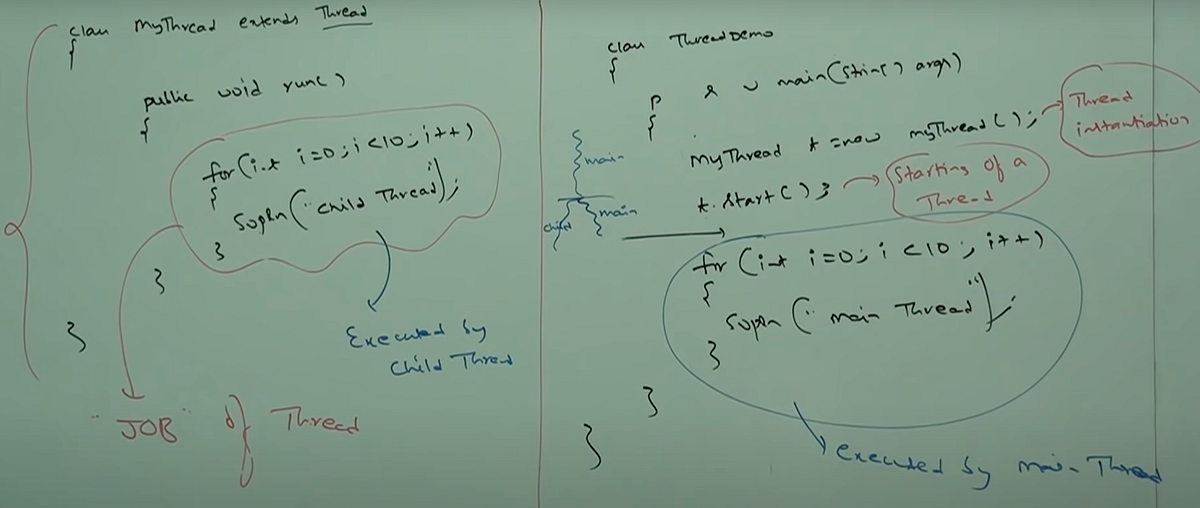 class MyThread extends Thread
{
public void run()
{
for(int i=0; i<10; i++)
{
Sopln("child Thread");
}
}
}
Executed by
Child Thread
"JOB" of Thread
class ThreadDemo
{
p s v main(String[] args)
{
MyThread t = new MyThread();
Thread
instantiation
t.start();
Starting of a
Thread
main
child
main
for (int i=0; i<10; i++)
{
Sopln("main Thread");
}
}
}
executed by main Thread